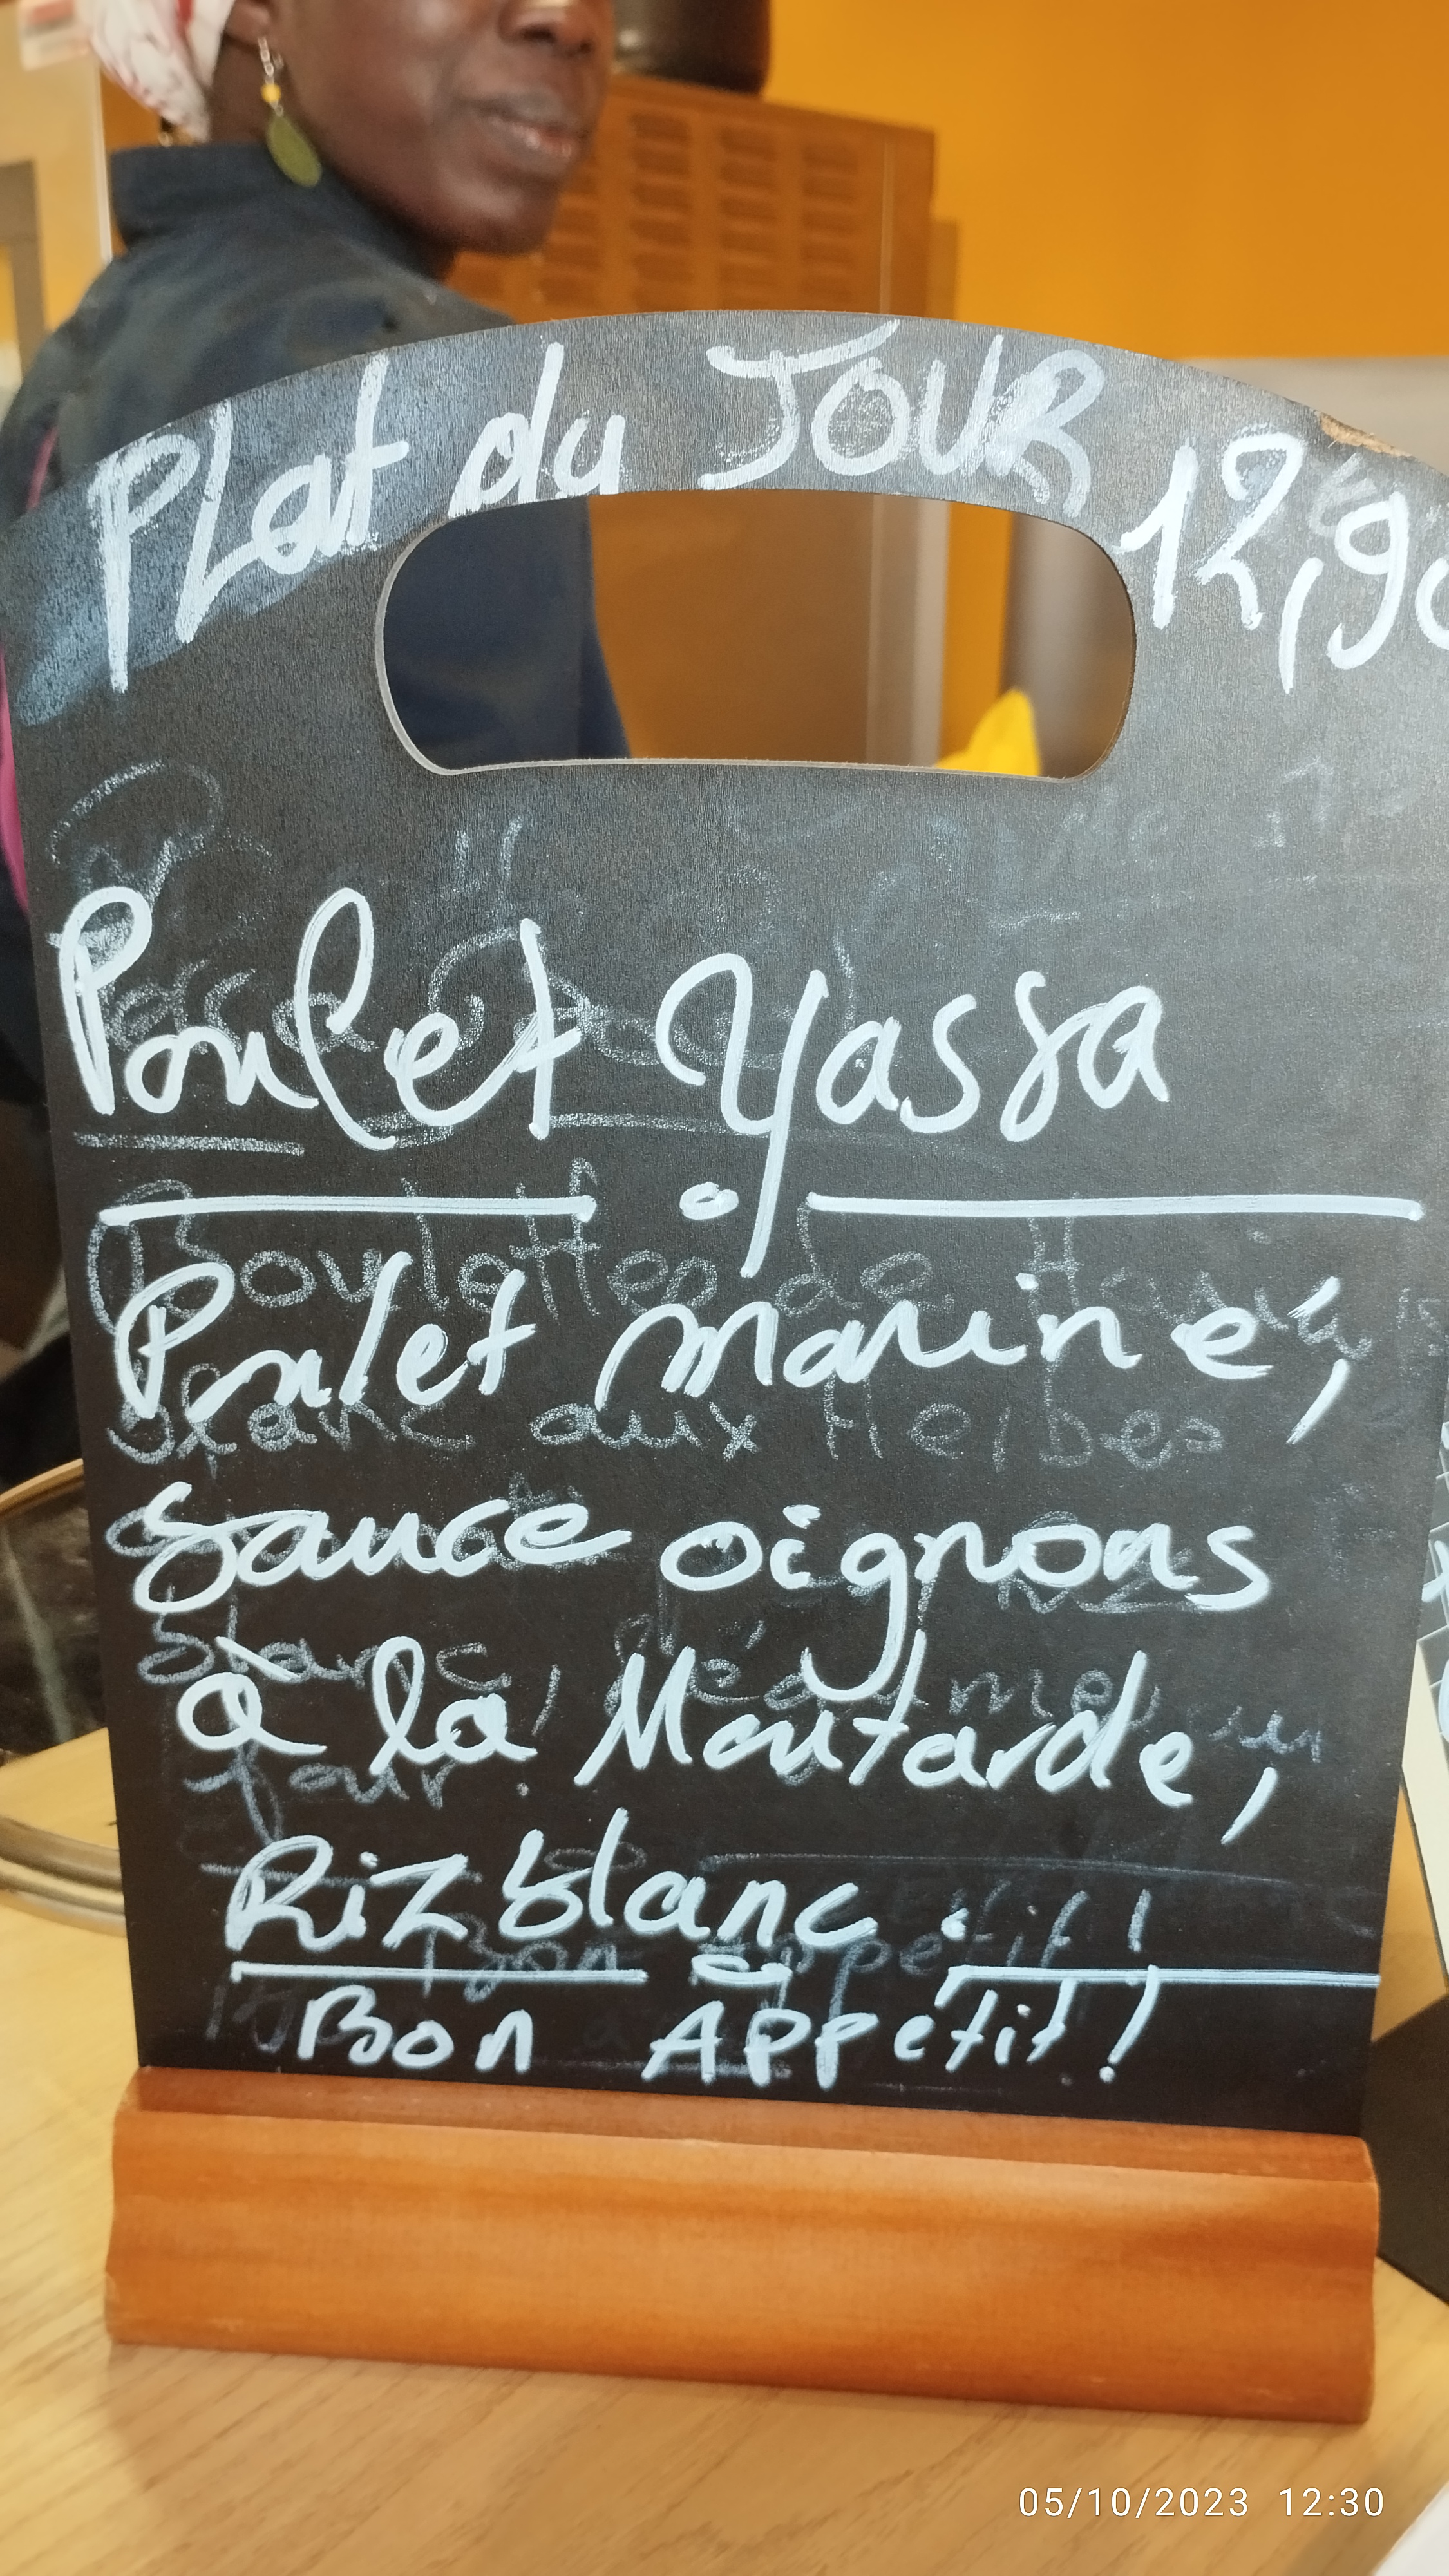 PLat du JOUR 12,90
Poulet Yassa
Poulet mariné,
Sauce oignons
à la Moutarde,
Riz blanc.
Bon Appétit !
05/10/2023 12:30